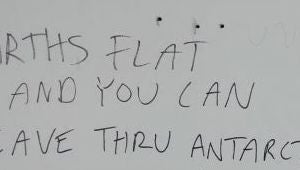 ARTHS FLAT
AND YOU CAN
EAVE THRU ANTARC